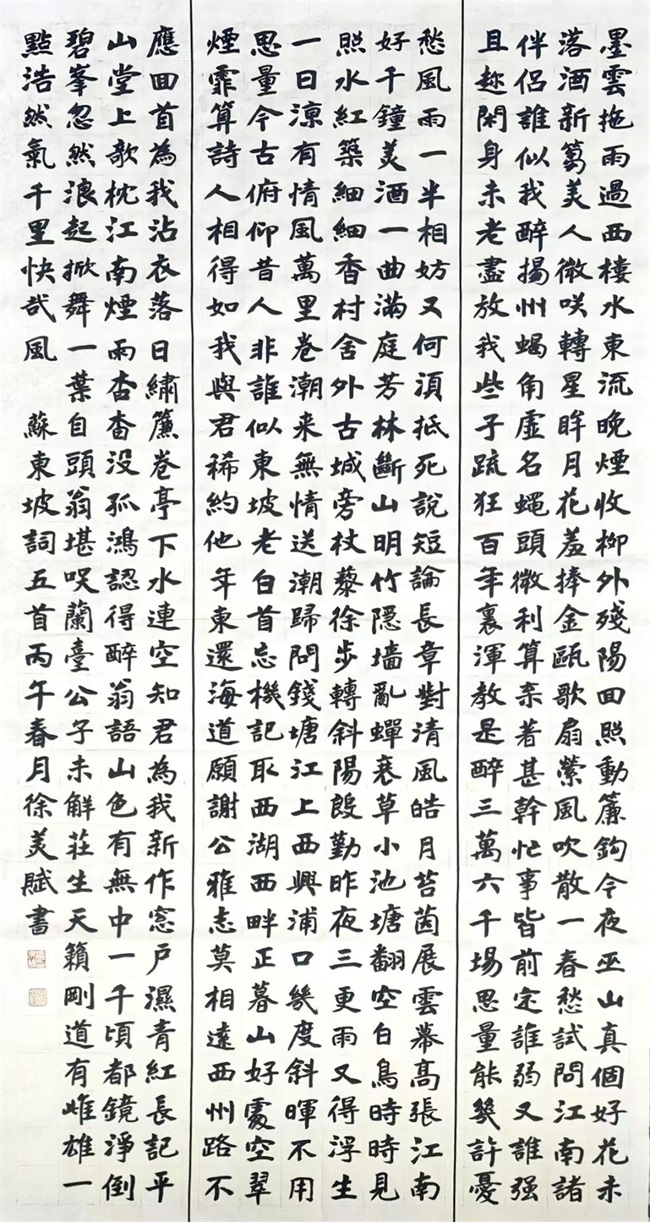 墨雲拖雨過西樓水東流晚煙收柳外殘陽回照動簾鉤今夜巫山真個好花未
落酒新篘美人微咲轉星眸月花羞捧金甌歌扇縈風吹散一春愁試問江南諸
伴侶誰似我醉揚州蝸角虛名蠅頭微利算來著甚幹忙事皆前定誰弱又誰强
且趂閑身未老盡放我些子疏狂百年裏渾教是醉三萬六千場思量能幾許憂
愁風雨一半相妨又何須抵死說短論長章對清風皓月苔茵展雲幕高張江南
好千鐘美酒一曲滿庭芳林斷山明竹隱墻亂蟬衰草小池塘翻空白鳥時時見
照水紅築細細香村舍外古城旁杖藜徐步轉斜陽殷勤昨夜三更雨又得浮生
一日凉有情風萬里卷潮来無情送潮歸問錢塘江上西興浦口幾度斜暉不用
思量今古俯仰昔人非誰似東坡老白首忘機記取西湖西畔正暮山好處空翠
煙霏算詩人相得如我與君稀約他年東還海道願謝公雅志莫相違西州路不
應回首為我沾衣落日繡簾卷亭下水連空知君為我新作窓戶濕青紅長記平
山堂上欹枕江南煙雨杳杳没孤鴻認得醉翁語山色有無中一千頃都鏡淨倒
碧峯忽然浪起掀舞一葉自頭翁堪咲蘭臺公子未解莊生天籟剛道有雌雄一
點浩然氣千里快哉風 蘇東坡詞五首丙午春月徐美賦書